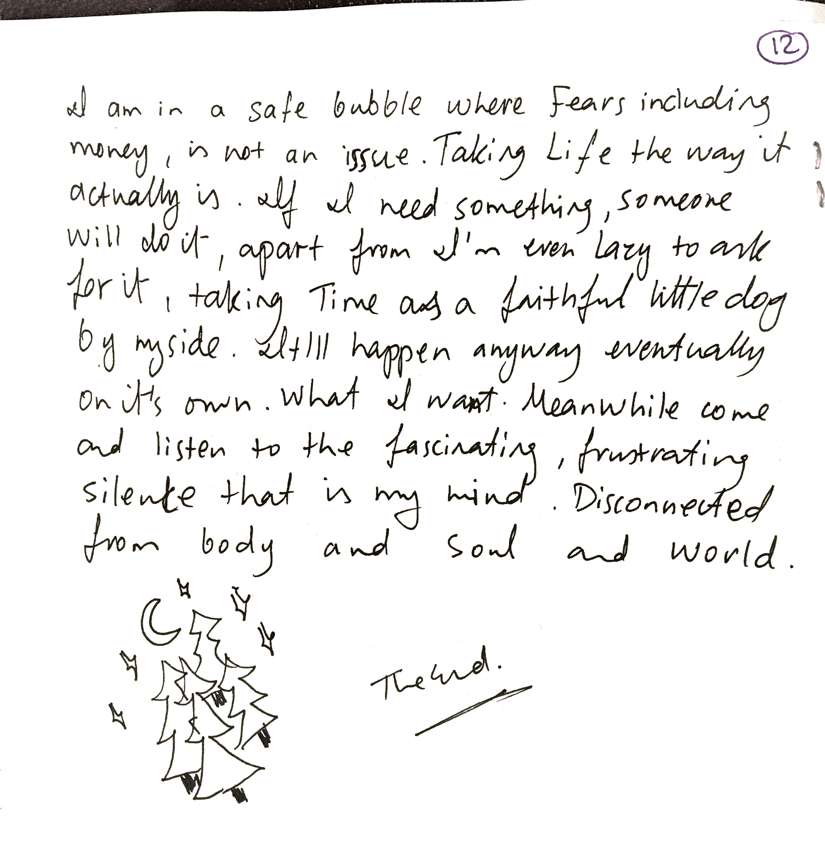 12
I am in a safe bubble where Fears including
money, is not an issue. Taking Life the way it
actually is. If I need something, someone
will do it, apart from I'm even Lazy to ask
for it, taking Time as a faithful little dog
by myside. It'll happen anyway eventually
on it's own. What I want. Meanwhile come
and listen to the fascinating, frustrating
silence that is my mind. Disconnected
from body and soul and world.
The End.